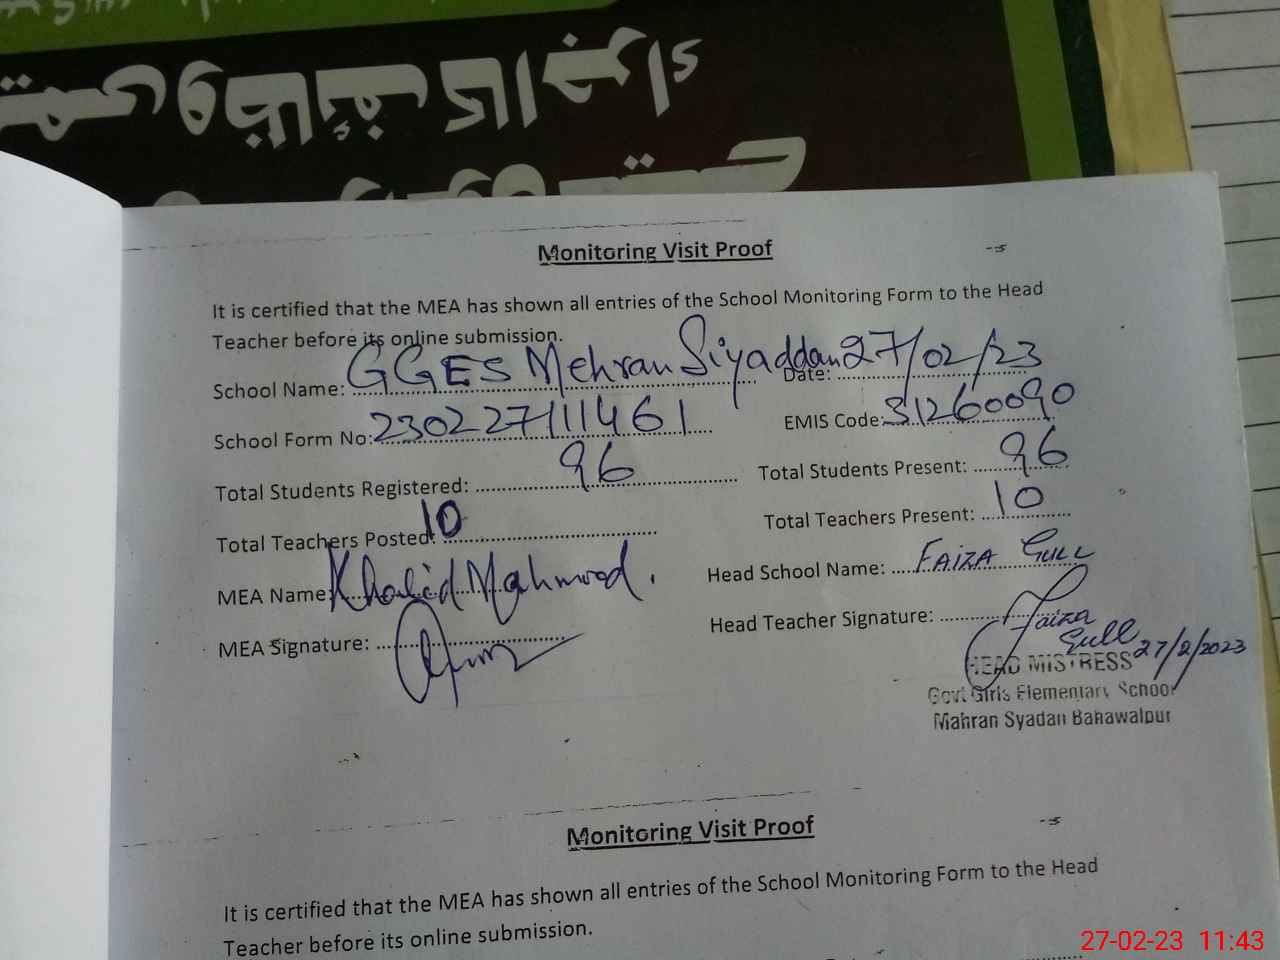 وظائف کا اجراء
Monitoring Visit Proof
It is certified that the MEA has shown all entries of the School Monitoring Form to the Head
Teacher before its online submission.
School Name: GGES Mehran Siyaddan Date: 27/02/23
School Form No: 230227111461 EMIS Code: 31260090
Total Students Registered: 96 Total Students Present: 96
Total Teachers Posted: 10 Total Teachers Present: 10
MEA Name: Khalid Mahmood. Head School Name: FAIZA GULL
MEA Signature: Head Teacher Signature: Faiza
Gull 27/2/2023
HEAD MISTRESS
Govt Girls Elementary School
Mahran Syadan Bahawalpur
Monitoring Visit Proof
It is certified that the MEA has shown all entries of the School Monitoring Form to the Head
Teacher before its online submission.
27-02-23 11:43